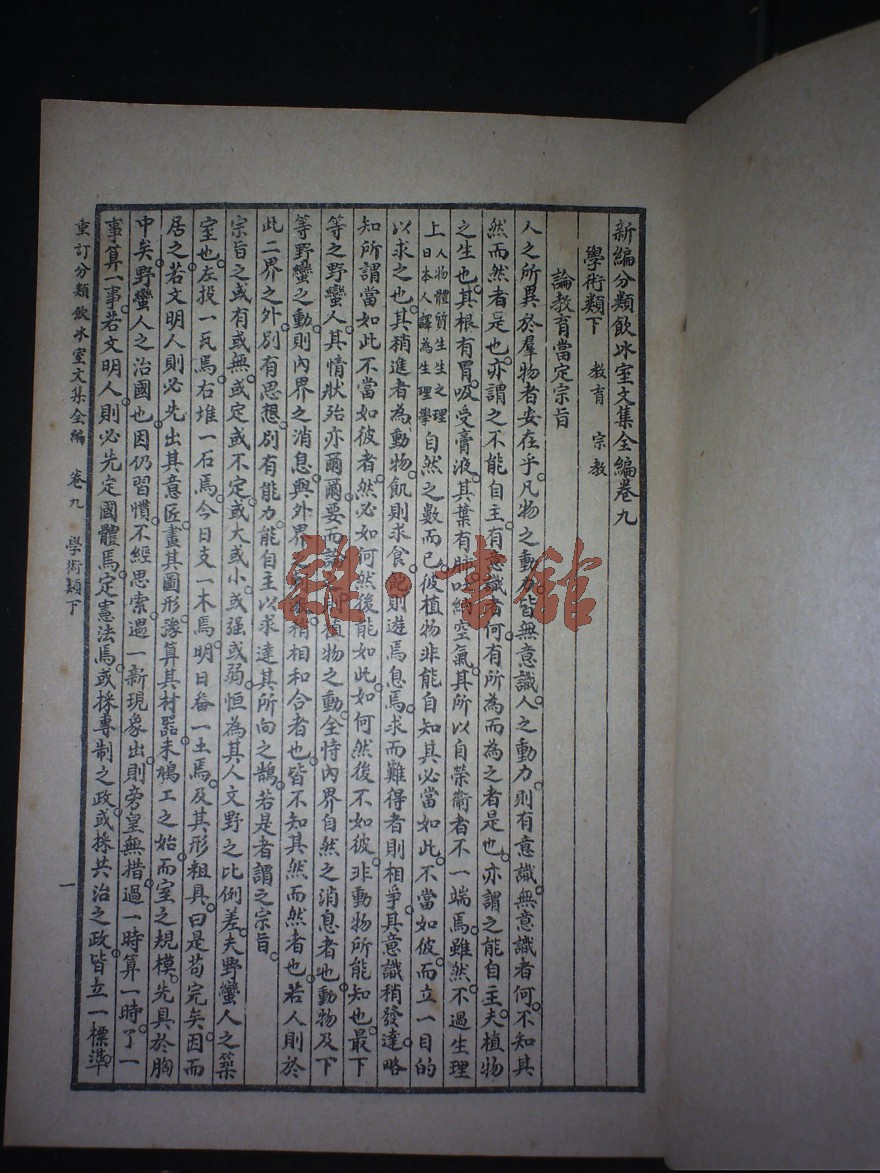 新編分類飲冰室文集全編卷九
學術類下 教育 宗教
論教育當定宗旨
人之所異於羣物者安在乎凡物之動力皆無意識人之動力則有意識無意識者何不知其
然而然者是也亦謂之不能自主有意識者何有所為而為之者是也亦謂之能自主夫植物
之生也其根有胃吸受膏液其葉有肺吐納空氣其所以自榮衛者不一端焉雖然不過生理
上人物體質生生之理日本人譯為生理學自然之數而已彼植物非能自知其必當如此不當如彼而立一目的
以求之也其稍進者為動物飢則求食飽則遊焉息焉求而難得者則相爭其意識稍發達略
知所謂當如此不當如彼者然必如何然後能如此如何然後不如彼非動物所能知也最下
等之野蠻人其情狀殆亦爾爾要而論之則植物之動全恃內界自然之消息者也動物及下
等野蠻之動則內界之消息與外界之刺激稍相和合者也皆不知其然而然者也若人則於
此二界之外別有思想別有能力能自主以求達其所向之鵠若是者謂之宗旨
宗旨之或有或無或定或不定或大或小或强或弱恒為其人文野之比例差夫野蠻人之築
室也左投一瓦焉右堆一石焉今日支一木焉明日畚一土焉及其形粗具曰是苟完矣因而
居之若文明人則必先出其意匠畫其圖形豫算其材器未鳩工之始而室之規模先具於胸
中矣野蠻人之治國也因仍習慣不經思索遇一新現象出則旁皇無措過一時算一時了一
事算一事若文明人則必先定國體焉定憲法焉或採專制之政或採共治之政皆立一標準
重訂分類飲冰室文集全編 卷九 學術類下
一
雜·書館